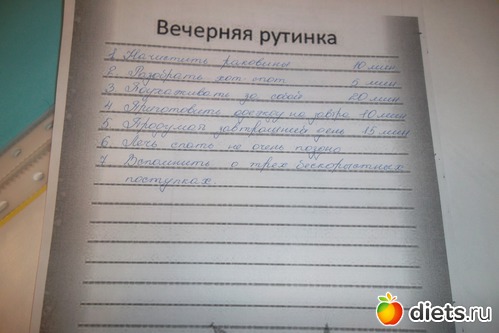 Вечерняя рутинка
1. Начистить раковины 10 мин
2. Разобрать хот-спот 5 мин.
3. Поухаживать за собой 20 мин
4 Приготовить одежду на завтра 10 мин
5 Продумай завтрашний день 15 мин
6 Лечь спать не очень поздно
7. Вспомнить о трех бескорыстных
поступках.
diets.ru